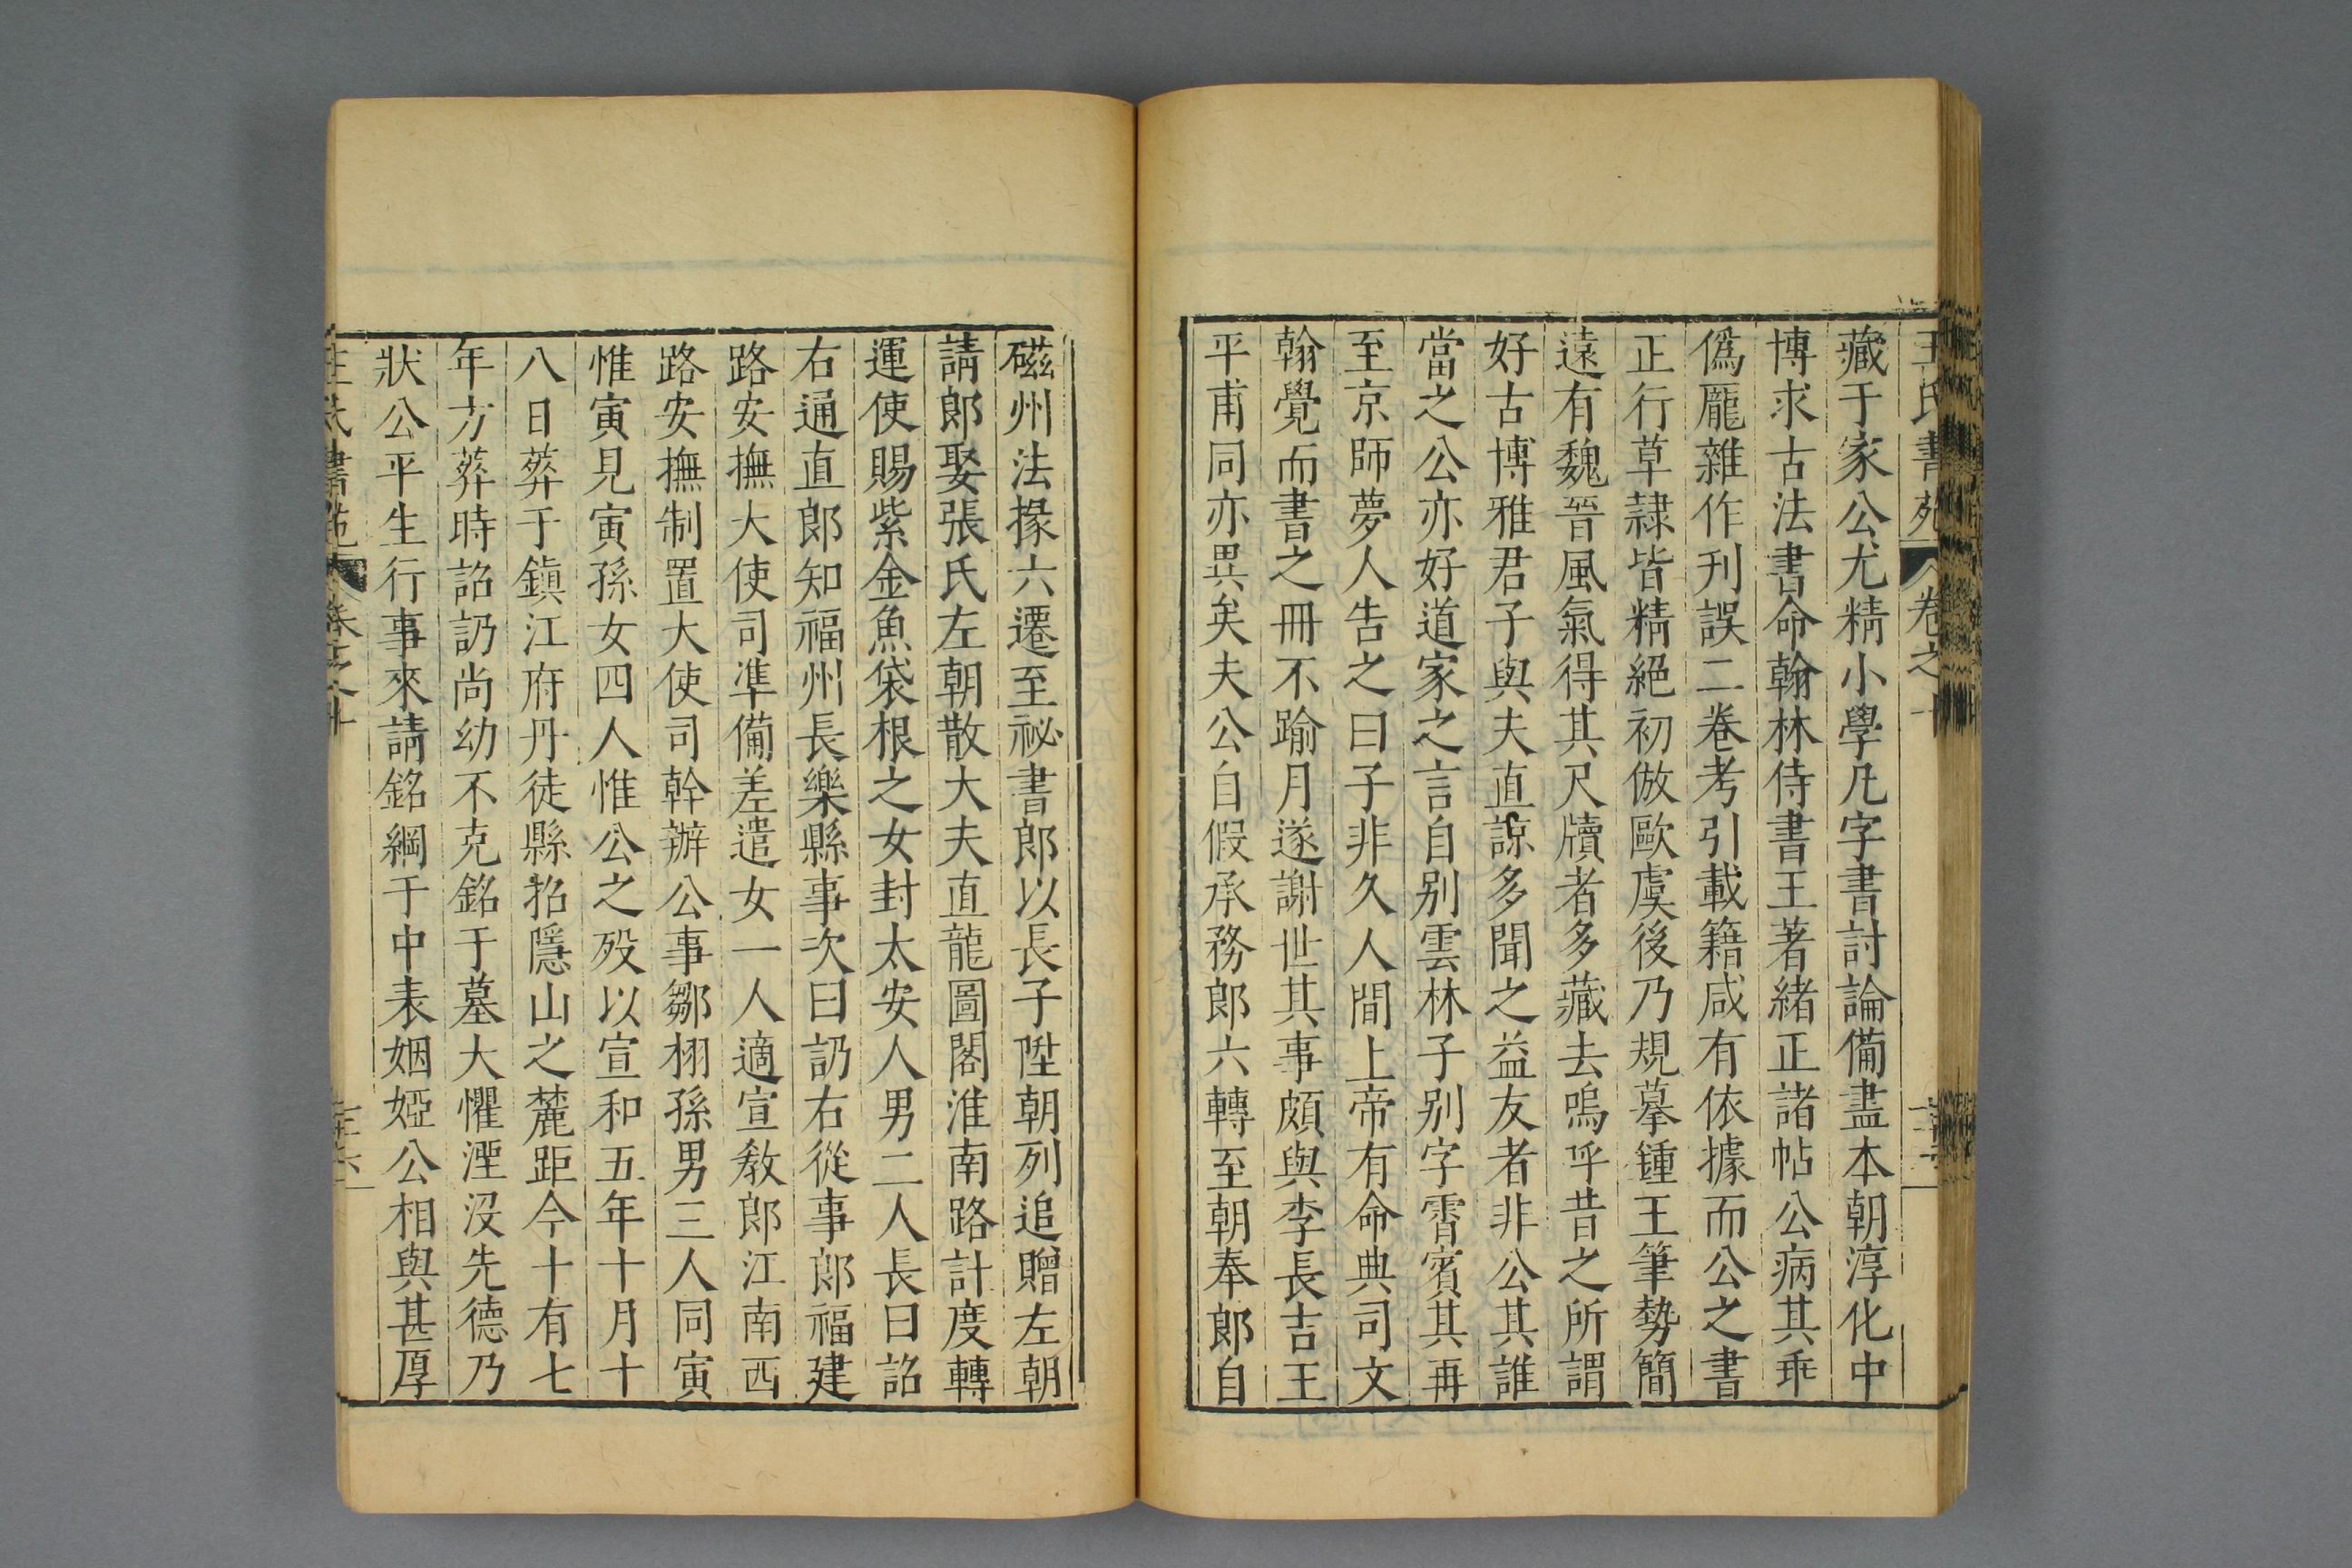 王氏書苑 卷之十
藏于家公尤精小學凡字書討論備盡本朝淳化中
博求古法書命翰林侍書王著緒正諸帖公病其乖
偽龐雜作刋誤二卷考引載籍咸有依據而公之書
正行草隷皆精絕初倣歐虞後乃規摹鍾王筆勢簡
遠有魏晉風氣得其尺牘者多藏去嗚呼昔之所謂
好古博雅君子與夫直諒多聞之益友者非公其誰
當之公亦好道家之言自别雲林子别字霄賓其再
至京師夢人告之曰子非久人間上帝有命典司文
翰覺而書之冊不踰月遂謝世其事頗與李長吉王
平甫同亦異矣夫公自假承務郎六轉至朝奉郎自
磁州法掾六遷至祕書郎以長子陞朝列追贈左朝
請郎娶張氏左朝散大夫直龍圖閣淮南路計度轉
運使賜紫金魚袋根之女封太安人男二人長曰詔
右通直郎知福州長樂縣事次曰訒右從事郎福建
路安撫大使司準備差遣女一人適宣教郎江南西
路安撫制置大使司幹辦公事鄒栩孫男三人同寅
惟寅見寅孫女四人惟公之歿以宣和五年十月十
八日葬于鎮江府丹徒縣招隱山之麓距今十有七
年方葬時詔訒尚幼不克銘于墓大懼湮沒先德乃
狀公平生行事來請銘綱于中表姻婭公相與甚厚